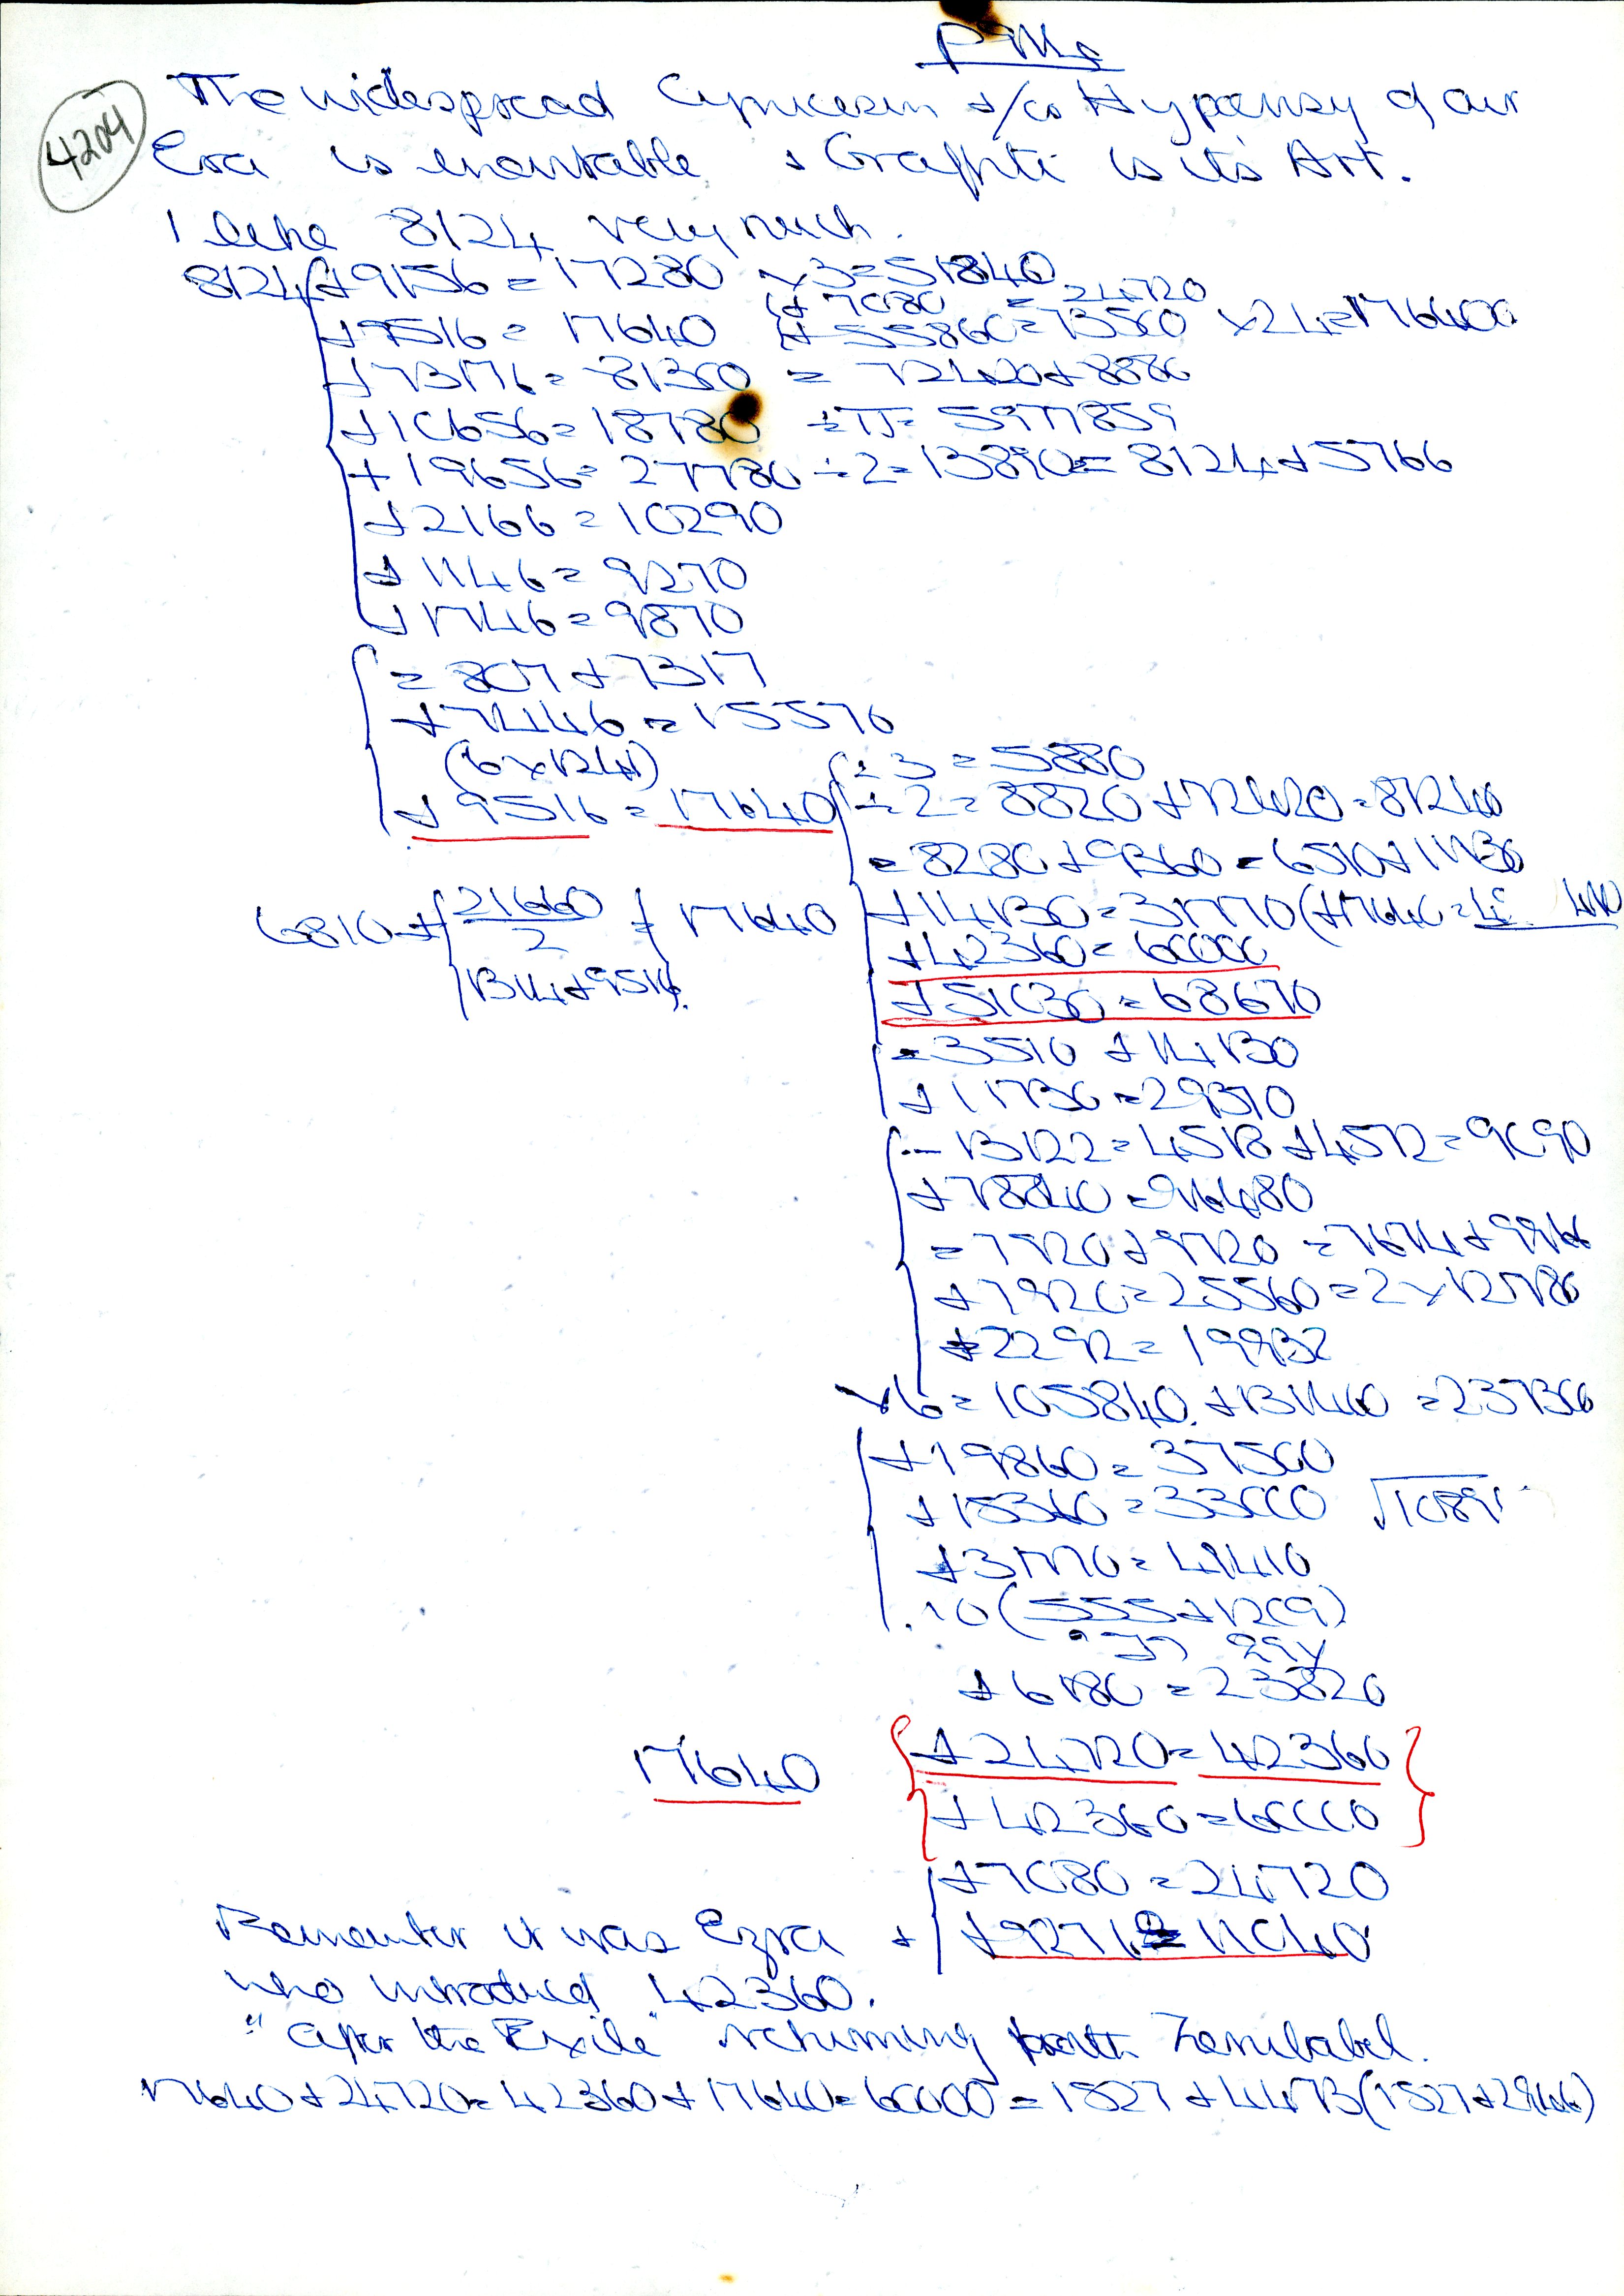 PMs
4204
The widespread Cynicism +/or Hypocrisy of our
Era is inevitable + Graffiti is its Art.
I like 8124 very much.
8124 + 9156 = 17280 x 3 = 51840
+ 7080 = 24720
+ 9516 = 17640 + 55860 = 73500 x 24 = 1764000
+ 73176 = 81300 = 72420 + 8880
+ 10656 = 18780 ÷ π = 5977859
+ 19656 = 27780 ÷ 2 = 13890 = 8124 + 5766
+ 2166 = 10290
+ 1146 = 9270
+ 1746 = 9870
= 807 + 7317
+ 7446 = 15570
(6 x 1241)
+ 9516 = 17640
÷ 3 = 5880
÷ 2 = 8820 + 72420 = 81240
= 8280 + 9360 = 6510 + 11130
6810 + 21660/2 = 17640
1314 + 9516
+ 14130 = 31770 (+ 17640 =
+ 42360 = 60000
+ 51030 = 68670
= 3510 + 14130
+ 11730 = 29370
- 13122 = 4518 + 4572 = 9090
+ 78840 = 96480
= 7920 + 9720 = 7674 + 9966
+ 7920 = 25560 = 2 x 12780
+ 2292 = 19932
x 6 = 105840 + 131460 = 237300
+ 19860 = 37500
+ 15360 = 33000 √1089
+ 31770 = 49410
10 (555 + 1209)
+ 6180 = 23820
17640
+ 24720 = 42360
+ 42360 = 60000
+ 7080 = 24720
Remember it was Ezra +
who introduced 42360.
"After the Exile" returning Zerubabel.
17640 + 24720 = 42360 + 17640 = 60000 = 1527 + 4473 (1527 + 2946)